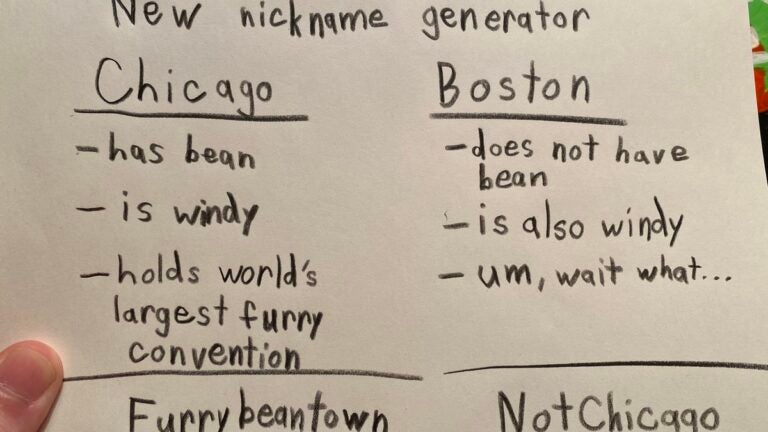 New nickname generator
Chicago
- has bean
- is windy
- holds world's
largest furry
convention
Furrybeantown
Boston
- does not have
bean
- is also windy
- um, wait what...
NotChicago